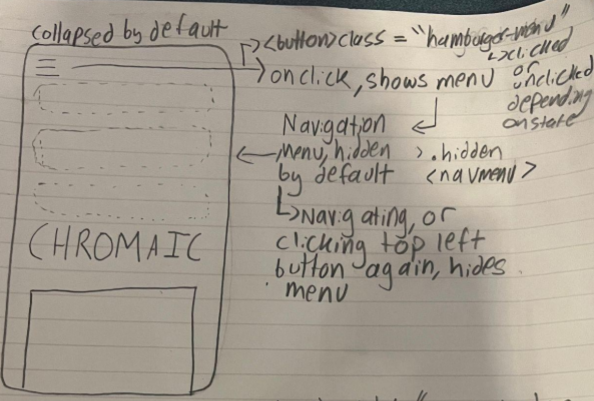 collapsed by default
<button>class = "hamburger-menu"
↳clicked
or
unclicked
depending
on state
onclick, shows menu
Navigation
menu, hidden
by default
>.hidden
<navmenu>
↳Navigating, or
clicking top left
button again, hides
menu
CHROMAIC